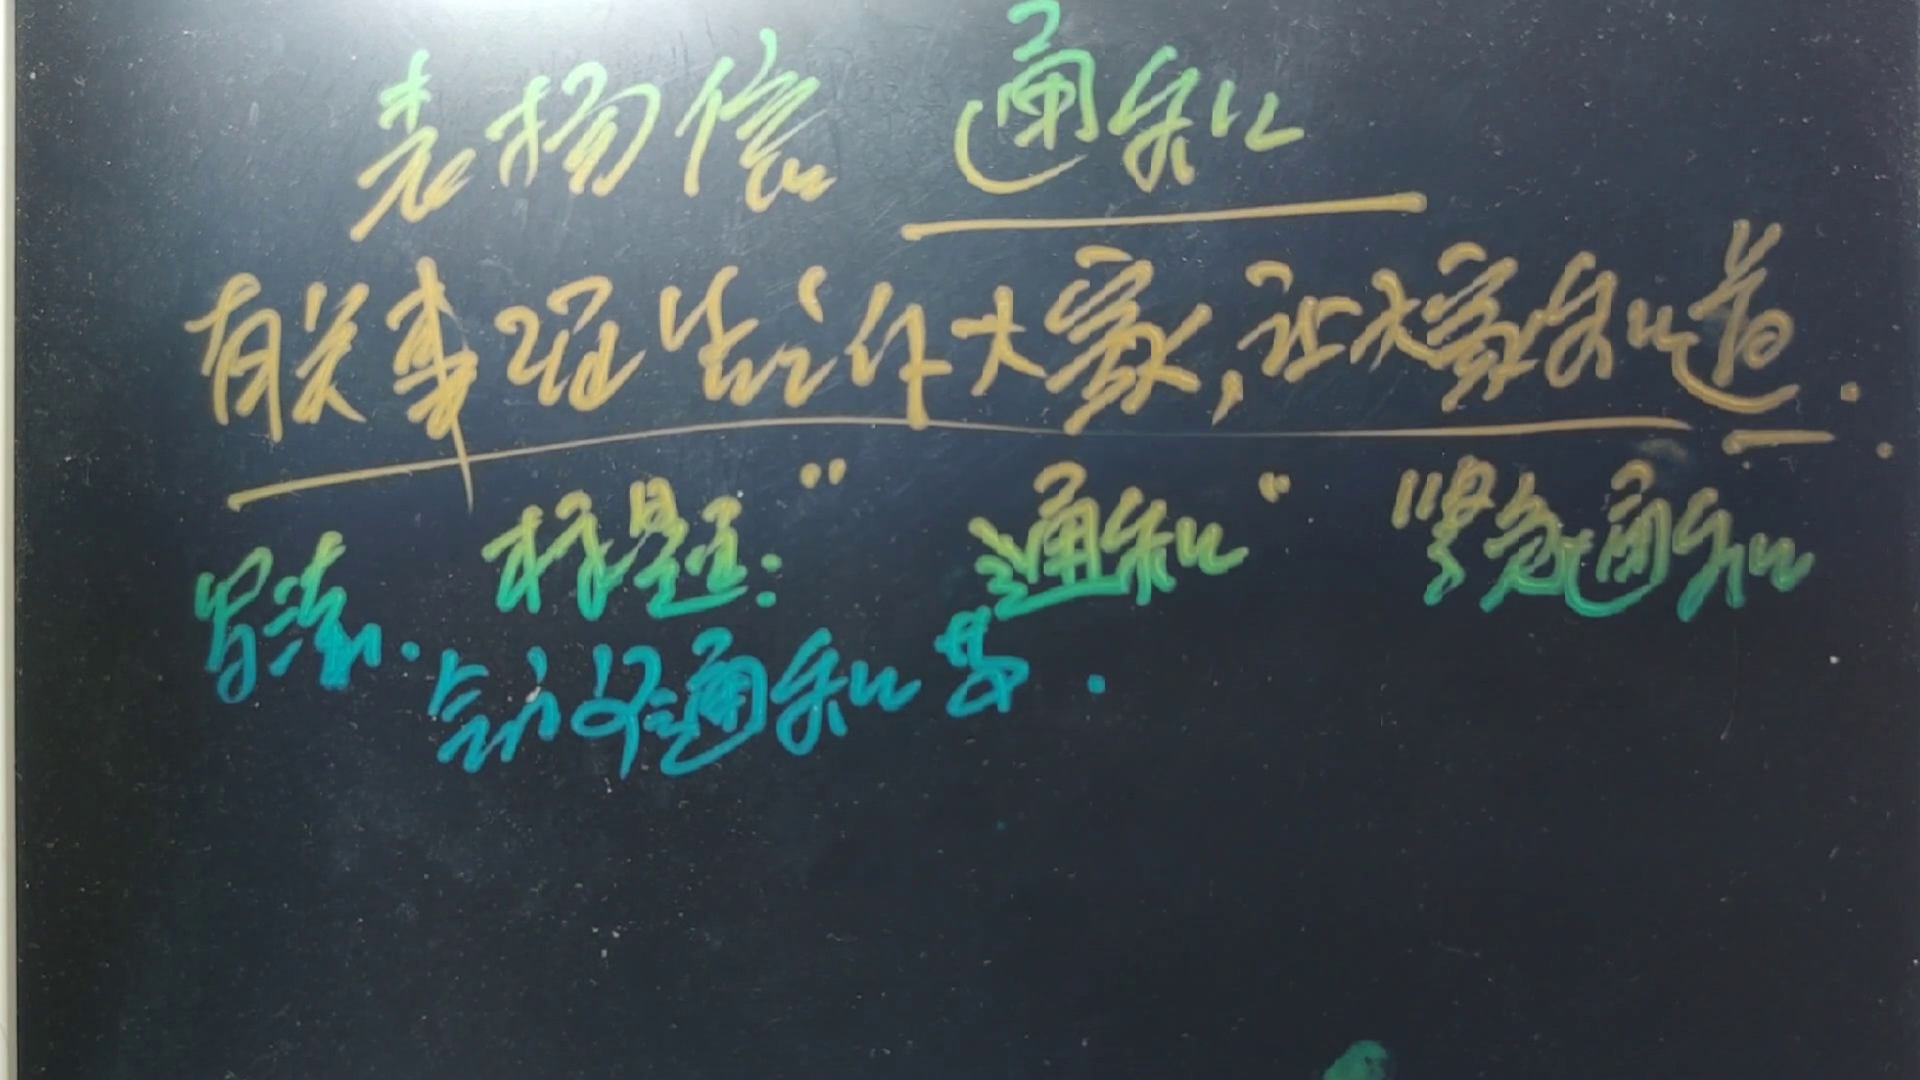 表扬信 通知
有关事理告诉大家,让大家知道.
写法. 标题: “ 通知“ “紧急通知
会议通知等.